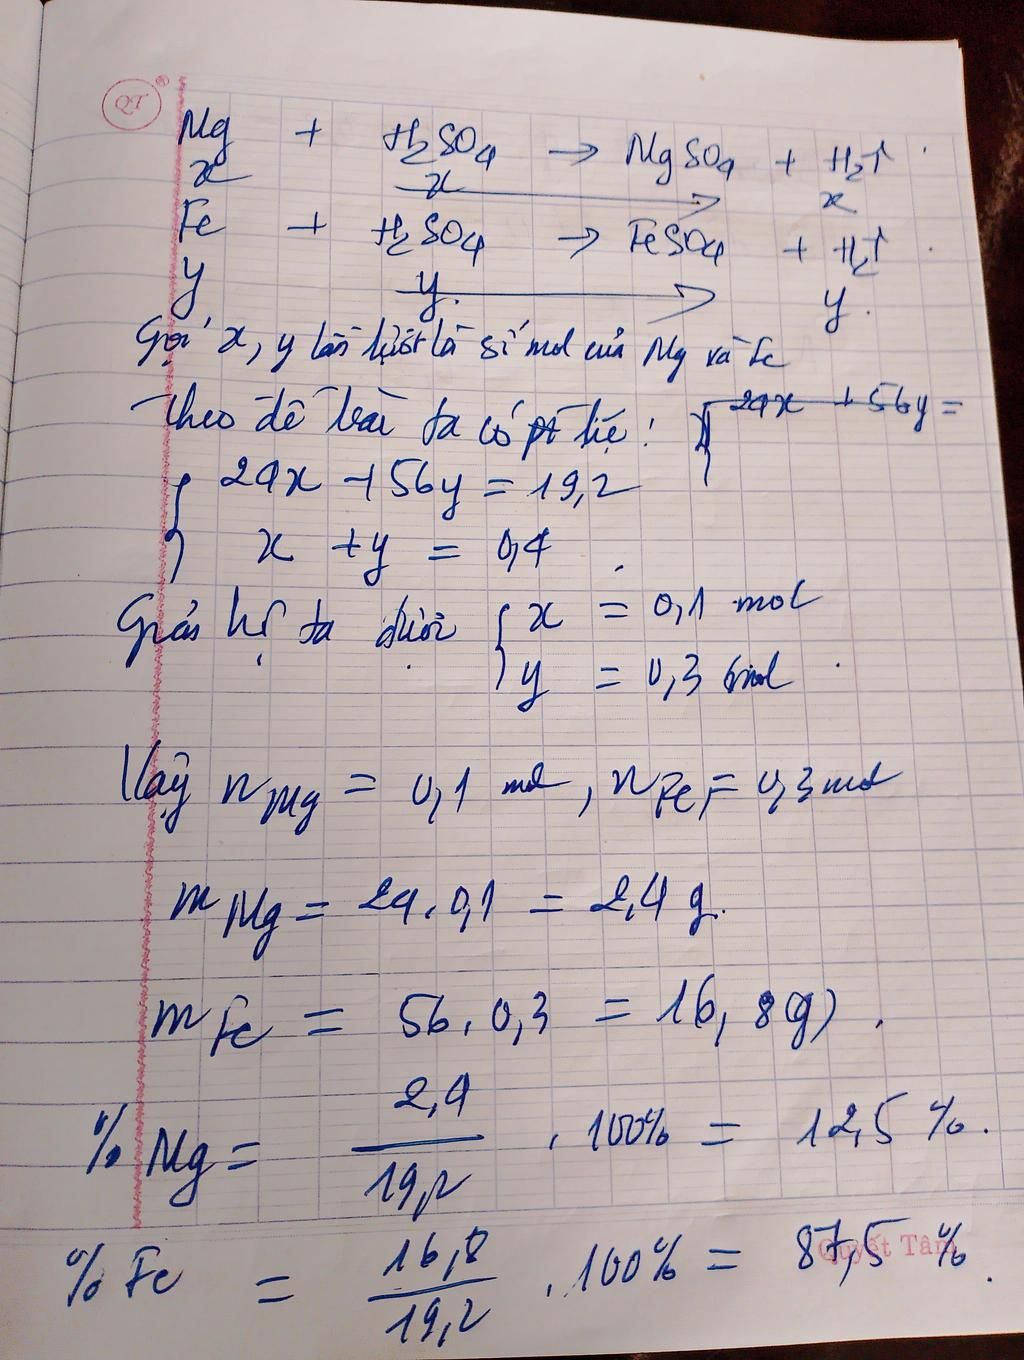 QT
Mg + H₂SO₄ → MgSO₄ + H₂↑
x x x
Fe + H₂SO₄ → FeSO₄ + H₂↑
y y y
Gọi x, y lần lượt là số mol của Mg và Fe
Theo đề bài ta có pt hệ: 24x + 56y =
24x + 56y = 19,2
x + y = 0,4
Giải hệ ta được x = 0,1 mol
y = 0,3 mol
Vậy nMg = 0,1 mol, nFe = 0,3 mol
mMg = 24.0,1 = 2,4 g.
mFe = 56.0,3 = 16,8g).
%Mg = 2,4 / 19,2 . 100% = 12,5%.
Quyết Tâm
%Fe = 16,8 / 19,2 . 100% = 87,5%.